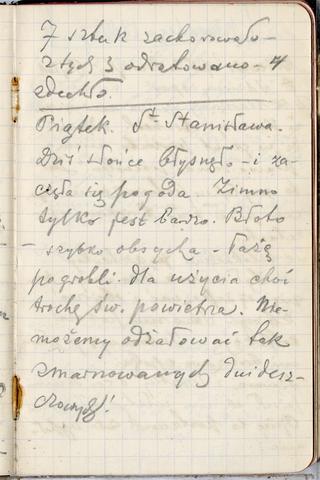 7 sztuk zachorowało -
z tych 3 odratowano - 4
zdechło.
Piątek. St. Stanisława.
Dziś słońce błysnęło - i za-
częła się pogoda. Zimno
tylko jest bardzo. Błoto
- szybko obsycha - Łażę
po grobli. dla użycia choć
trochę św. powietrza. Nie-
możemy odżałować tak
zmarnowanych dni desz-
czowych!